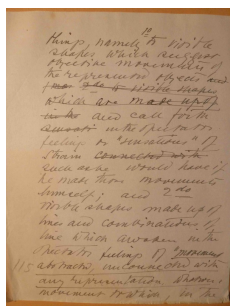 things, namely to visible
shapes which suggest
objective movements of
the represented objects and
which are made up of
and call for the
in the spectator
feelings or "sensations" of
strain connected with
such as he would have if
he made those movements
himself; and
visible shapes made up of
lines and combinations of
line which awaken in the
spectator feelings of "movement
115 abstracted, unconnected with
any representation whatsoever
movement to which, in the